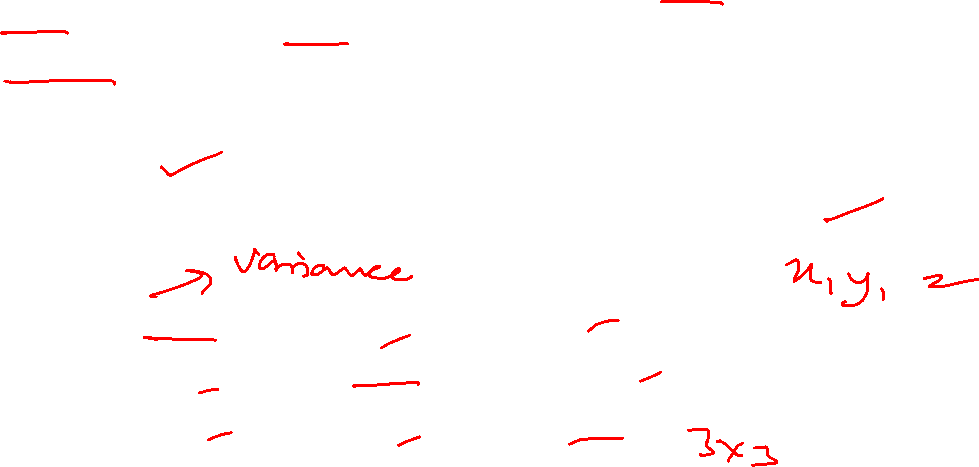 variance
x, y, z
3x3